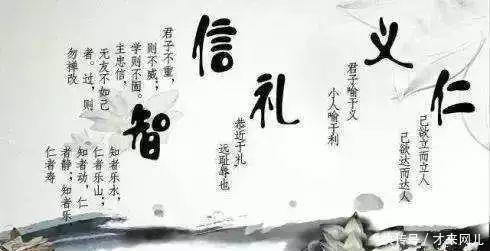 仁
己欲立而立人
己欲达而达人
义
君子喻于义
小人喻于利
礼
恭近于礼
远耻辱也
信
君子不重，
则不威；
学则不固。
主忠信，
无友不如己
者。过，则
勿禅改
智
知者乐水，
仁者乐山；
知者动，仁
者静；知者乐
仁者寿
号／才来网儿